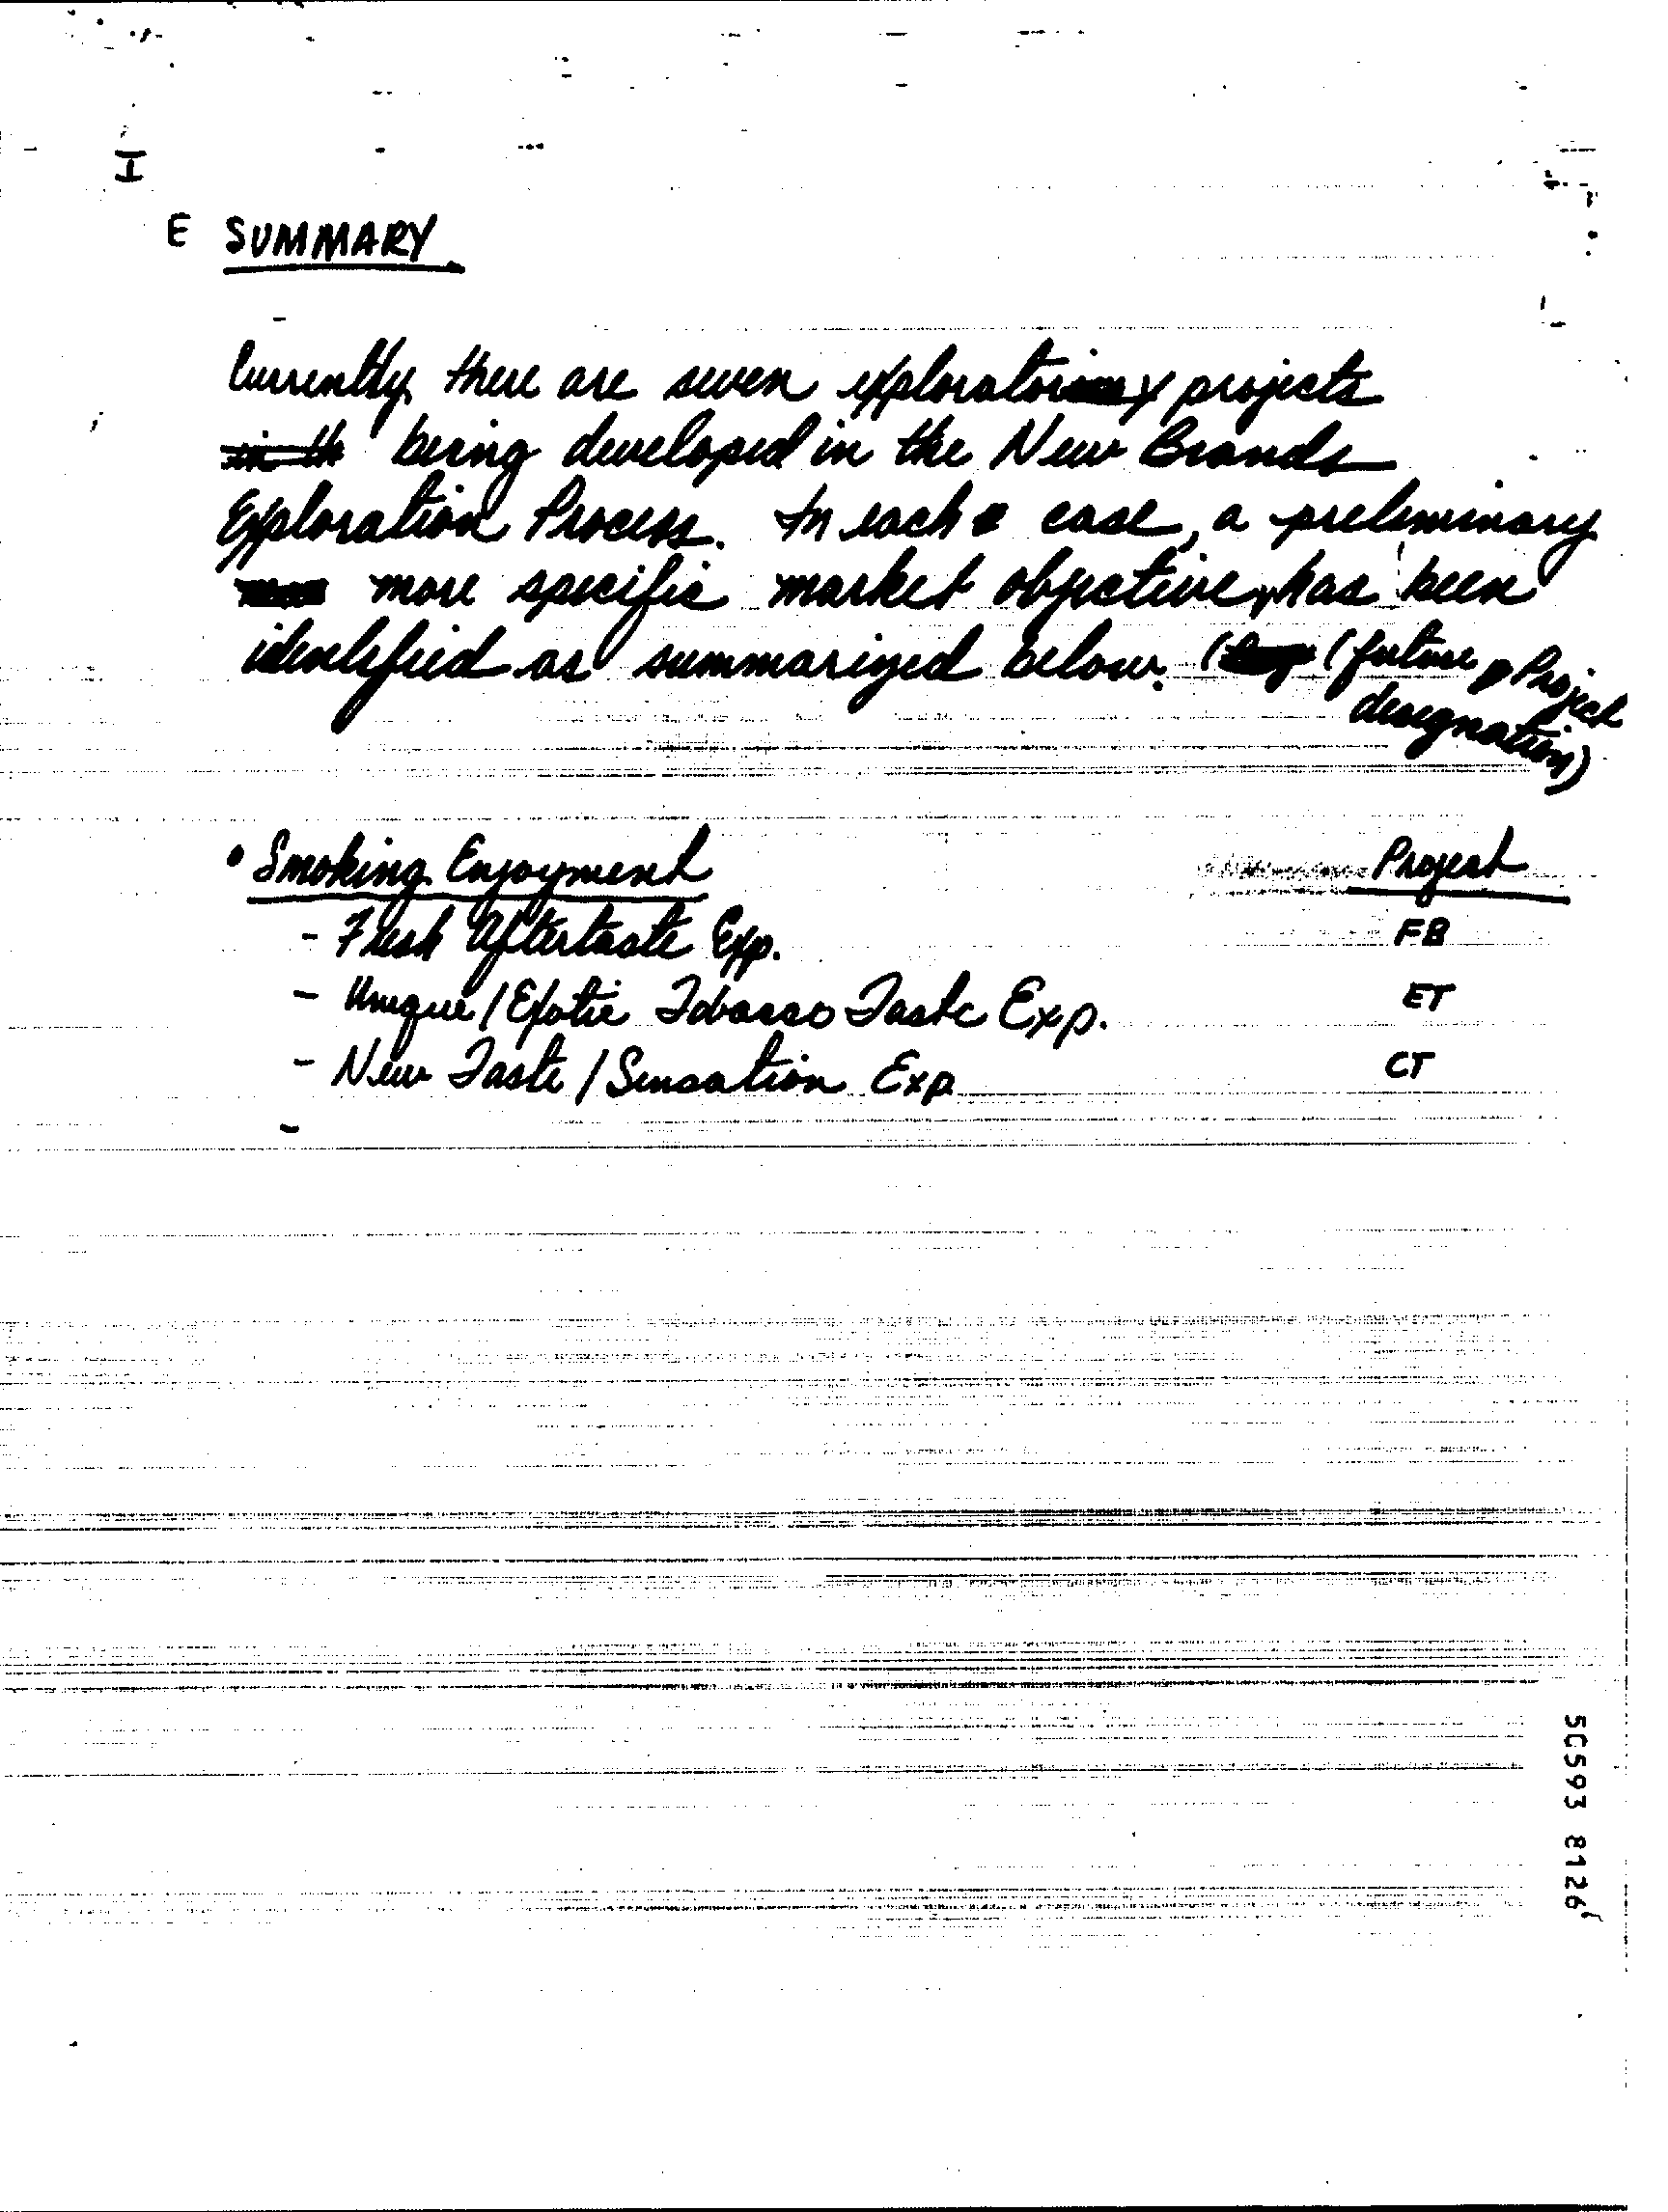 I
E SUMMARY
Currently there are seven exploratory projects
being developed in the New Brands
Exploration Process. In each case, a preliminary
more specific market objective, has been
identified as summarized below. (future Project
designation)
• Smoking Enjoyment Project
- Fresh Aftertaste Exp. FB
- Unique / Exotic Tobacco Taste Exp. ET
- New Taste / Sensation Exp. CT
-
50593 8126